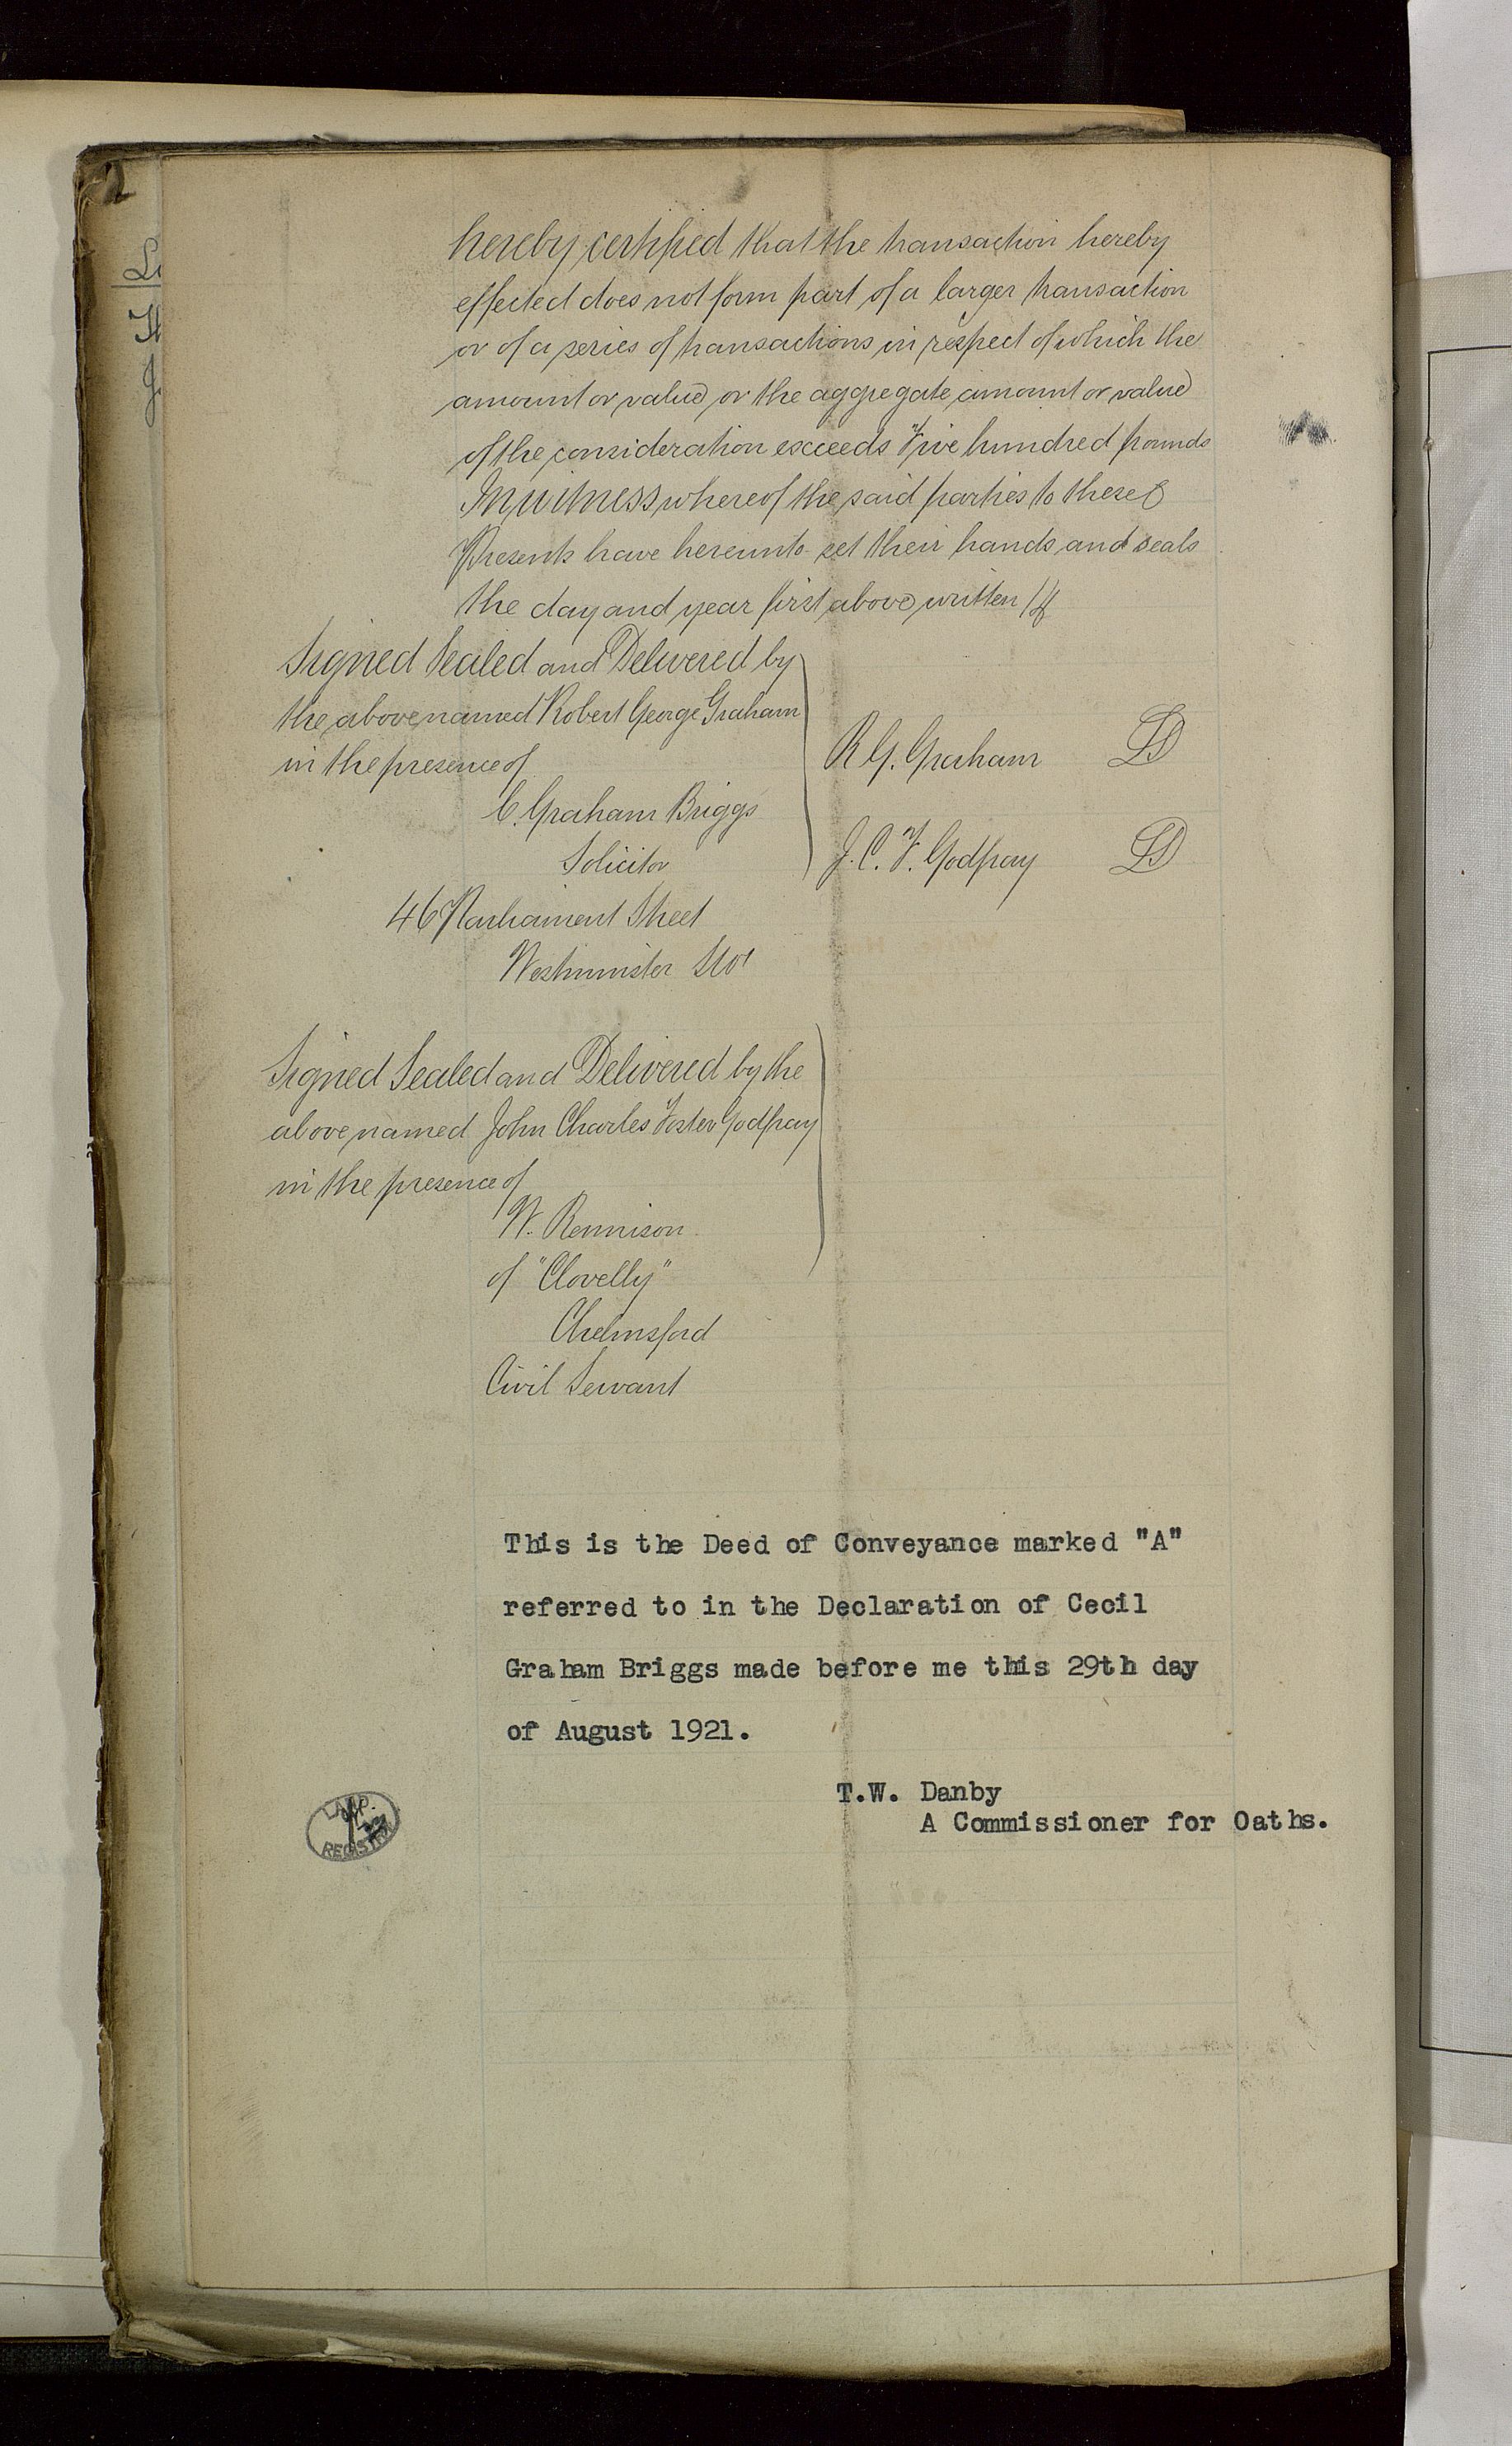 hereby certified that the transaction hereby
effected does not form part of a larger transaction
or of a series of transactions in respect of which the
amount or value or the aggregate amount or value
of the consideration exceeds Five hundred pounds
In witness whereof the said parties to these
Presents have hereunto set their hands and seals
the day and year first above written
Signed Sealed and Delivered by
the above named Robert George Graham
in the presence of
R G. Graham LS
C. Graham Briggs
Solicitor
J. C. F. Godfray LS
46 Parliament Street
Westminster SW1
Signed Sealed and Delivered by the
above named John Charles Foster Godfray
in the presence of
W. Rennison
of "Clovelly"
Chelmsford
Civil Servant
This is the Deed of Conveyance marked "A"
referred to in the Declaration of Cecil
Graham Briggs made before me this 29th day
of August 1921.
T.W. Danby
A Commissioner for Oaths.
LAND
REGISTRY